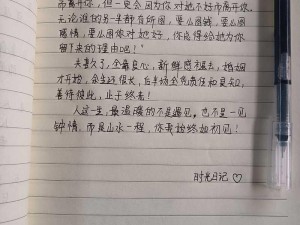 而离开你，但一定会因为你对她不好而离开你。
无论谁的另一半都有所图，要么图钱，要么图
感情，要么图你对她好，你总得给她为你
留下来的理由吧！
夫妻久了，全靠良心，新鲜感褪去，婚姻
才开始，余生还很长，后半场全凭责任和良知，
善待彼此，止于终老！
人这一生，最温暖的不是遇见，也不是一见
钟情，而是山水一程，你我始终如初见！
时光日记♡